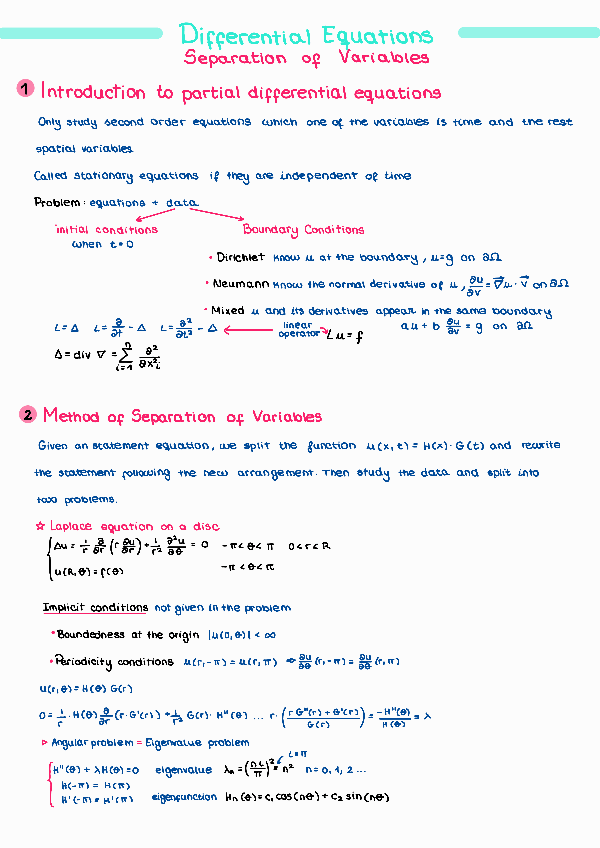 Differential Equations
Separation of Variables
1 Introduction to partial differential equations
Only study second order equations which one of the variables is time and the rest
spatial variables
Called stationary equations if they are independent of time
Problem: equations + data
initial conditions
when t=0
Boundary Conditions
• Dirichlet know u at the boundary, u=g on ∂Ω
• Neumann know the normal derivative of u, ∂u/∂v = ∇u · v on ∂Ω
• Mixed u and its derivatives appear in the same boundary
au + b ∂u/∂v = g on ∂Ω
L=Δ L=∂/∂t - Δ L=∂²/∂t² - Δ ← linear operator Lu=f
Δ = div ∇ = Σ i=1 n ∂²/∂x²i
2 Method of Separation of Variables
Given an statement equation, we split the function u(x,t) = H(x)·G(t) and rewrite
the statement following the new arrangement. Then study the data and split into
two problems.
☆ Laplace equation on a disc
Δu = 1/r ∂/∂r (r ∂u/∂r) + 1/r² ∂²u/∂θ = 0 -π<θ<π 0<r<R
u(R,θ) = f(θ) -π<θ<π
Implicit conditions not given in the problem
• Boundedness at the origin |u(0,θ)| < ∞
• Periodicity conditions u(r,-π) = u(r,π) ⇒ ∂u/∂θ (r,-π) = ∂u/∂θ (r,π)
u(r,θ) = H(θ) G(r)
0 = 1/r · H(θ) ∂/∂r (r·G'(r)) + 1/r² G(r)·H''(θ) ... r·(r G''(r) + G'(r) / G(r)) = -H''(θ)/H(θ) = λ
▷ Angular problem = Eigenvalue problem
H''(θ) + λH(θ) = 0 eigenvalue λn = (nπ/L)² = n² L=π n = 0, 1, 2 ...
H(-π) = H(π)
H'(-π) = H'(π) eigenfunction Hn(θ) = c₁ cos(nθ) + c₂ sin(nθ)